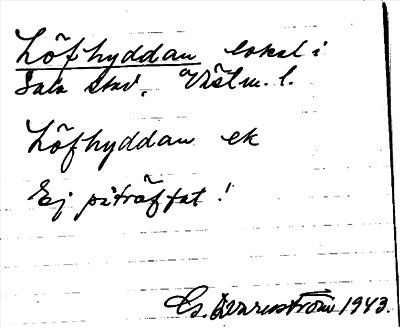 Löfhyddan lokal i
Sala stad, Västm. l.
Löfhyddan ek
Ej påträffat!
1943.